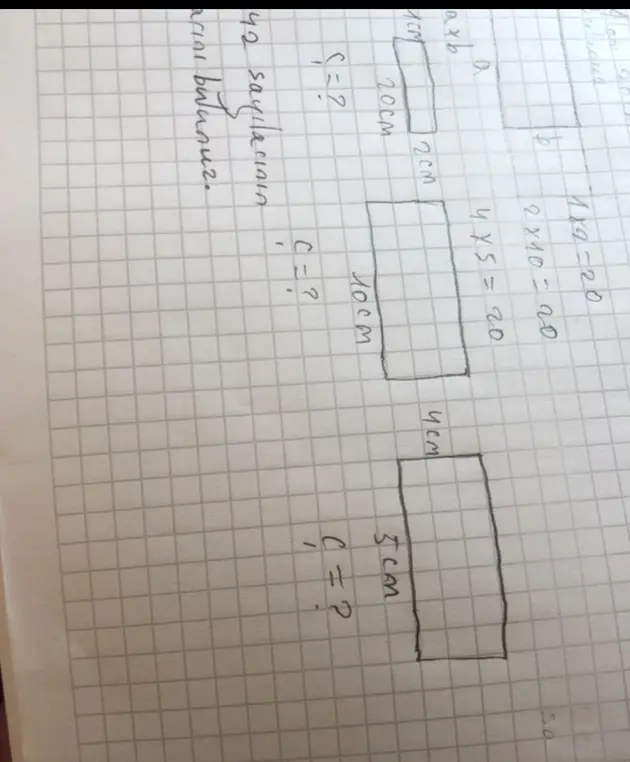 a
b
axb
1x2=20
2x10=20
4x5=20
1cm
20cm
Ç=?
2cm
10cm
Ç=?
4cm
5cm
Ç=?
42 sayılarının
bulunuz.